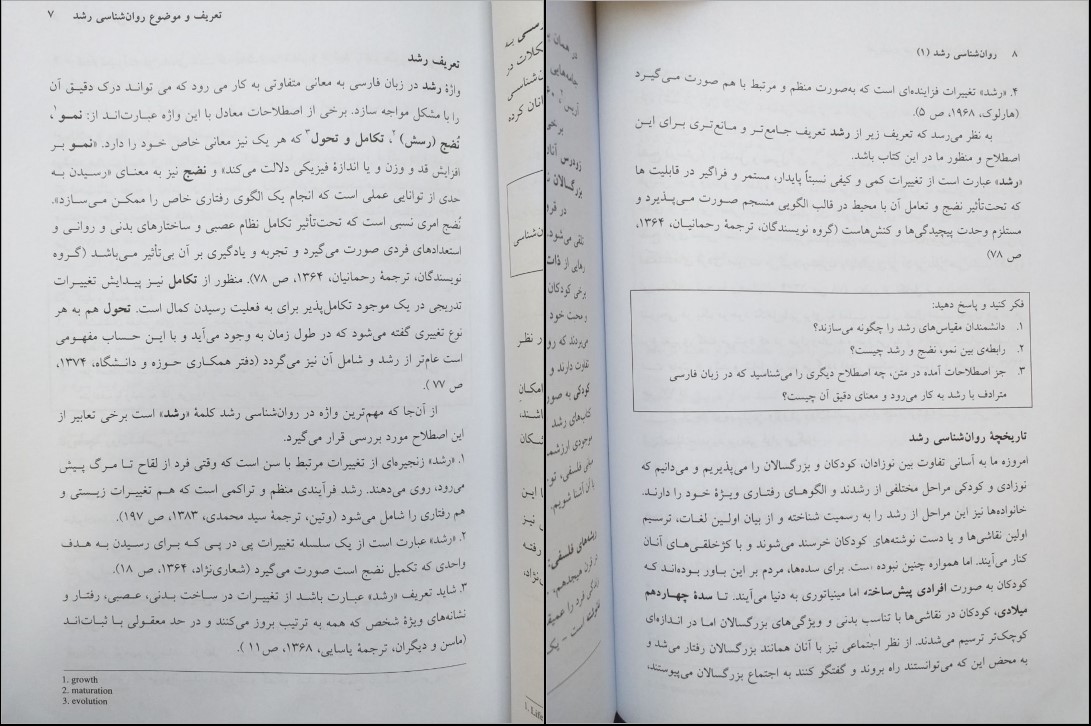 تعریف و موضوع روان‌شناسی رشد ۷
تعریف رشد
واژهٔ رشد در زبان فارسی به معانی متفاوتی به کار می رود که می توانـد درک دقیـق آن
را با مشکل مواجه سازد. برخی از اصطلاحات معادل با این واژه عبارت‌انـد از: نمـو۱،
نُضج (رسش) ۲، تکامل و تحول۳ که هر یک نیز معانی خاص خـود را دارد. «نمـو بـر
افزایش قد و وزن و یا اندازهٔ فیزیکی دلالت می‌کند» و نضج نیز به معنـای «رسـیدن بـه
حدی از توانایی عملی است که انجام یک الگوی رفتاری خاص را ممکـن مـی‌سـازد».
نُضج امری نسبی است که تحت‌تأثیر تکامل نظام عصبی و ساختارهای بدنی و روانـی و
استعدادهای فردی صورت می‌گیرد و تجربه و یادگیری بر آن بی‌تأثیر مـی‌باشـد (گـروه
نویسندگان، ترجمهٔ رحمانیان، ۱۳۶۴، ص ۷۸). منظور از تکامل نیـز پیـدایش تغییـرات
تدریجی در یک موجود تکامل‌پذیر برای به فعلیت رسیدن کمال است. تحول هم به هر
نوع تغییری گفته می‌شود که در طول زمان به وجود می‌آید و با ایـن حسـاب مفهـومی
است عام‌تر از رشد و شامل آن نیز می‌گردد (دفتر همکاری حوزه و دانشـگاه، ۱۳۷۴،
ص ۷۷ ).
از آن‌جا که مهم‌ترین واژه در روان‌شناسی رشد کلمهٔ «رشد» است برخی تعابیر از
این اصطلاح مورد بررسی قرار می‌گیرد.
۱. «رشد» زنجیره‌ای از تغییرات مرتبط با سن است که وقتی فرد از لقاح تـا مـرگ پـیش
می‌رود، روی می‌دهند. رشد فرآیندی منظم و تراکمی است که هـم تغییـرات زیسـتی و
هم رفتاری را شامل می‌شود (وتین، ترجمهٔ سید محمدی، ۱۳۸۳، ص ۱۹۷).
۲. «رشد» عبارت است از یک سلسله تغییرات پی در پـی کـه بـرای رسـیدن بـه هـدف
واحدی که تکمیل نضج است صورت می‌گیرد (شعاری‌نژاد، ۱۳۶۴، ص ۱۸).
۳. شاید تعریف «رشد» عبارت باشد از تغییرات در ساخت بدنـی، عصـبی، رفتـار و
نشانه‌های ویژهٔ شخص که همه به ترتیب بروز می‌کنند و در حد معقولی با ثبات‌انـد
(ماسن و دیگران، ترجمهٔ یاسایی، ۱۳۶۸، ص۱۱ ).
1. growth
2. maturation
3. evolution
۸ روان‌شناسی رشد (۱)
۴. «رشد» تغییرات فزاینده‌ای است که به‌صورت منظم و مرتبط با هم صورت مـی‌گیـرد
(هارلوک، ۱۹۶۸، ص ۵).
به نظر می‌رسد که تعریف زیر از رشد تعریف جامع‌تـر و مـانع‌تـری بـرای ایـن
اصطلاح و منظور ما در این کتاب باشد.
«رشد» عبارت است از تغییرات کمی و کیفی نسبتاً پایدار، مستمر و فراگیر در قابلیت ها
که تحت‌تأثیر نضج و تعامل آن با محیط در قالب الگویی منسجم صـورت مـی‌پـذیرد و
مستلزم وحدت پیچیدگی‌ها و کنش‌هاست (گروه نویسندگان، ترجمهٔ رحمانیـان، ۱۳۶۴،
ص ۷۸)
فکر کنید و پاسخ دهید:
۱. دانشمندان مقیاس‌های رشد را چگونه می‌سازند؟
۲. رابطه‌ی بین نمو، نضج و رشد چیست؟
۳. جز اصطلاحات آمده در متن، چه اصطلاح دیگری را می‌شناسید که در زبان فارسی
مترادف با رشد به کار می‌رود و معنای دقیق آن چیست؟
تاریخچهٔ روان‌شناسی رشد
امروزه ما به آسانی تفاوت بین نوزادان، کودکان و بزرگسالان را می‌پذیریم و می‌دانیم که
نوزادی و کودکی مراحل مختلفی از رشدند و الگوهای رفتـاری ویـژهٔ خـود را دارنـد.
خانواده‌ها نیز این مراحل از رشد را به رسمیت شناخته و از بیان اولـین لغـات، ترسـیم
اولین نقاشی‌ها و یا دست نوشته‌های کودکان خرسند می‌شوند و با کژخلقـی‌هـای آنـان
کنار می‌آیند. اما همواره چنین نبوده است. برای سده‌ها، مردم بر این باور بوده‌انـد کـه
کودکان به صورت افرادی پیش‌ساخته اما مینیاتوری به دنیا می‌آیند. تـا سـدهٔ چهـاردهم
میلادی، کودکان در نقاشی‌ها با تناسب بدنی و ویژگی‌های بزرگسالان امـا در انـدازه‌ای
کوچک‌تر ترسیم می‌شدند. از نظر اجتماعی نیز با آنان همانند بزرگسالان رفتار می‌شد و
به محض این که می‌توانستند راه بروند و گفتگو کنند به اجتماع بزرگسالان می‌پیوستند،